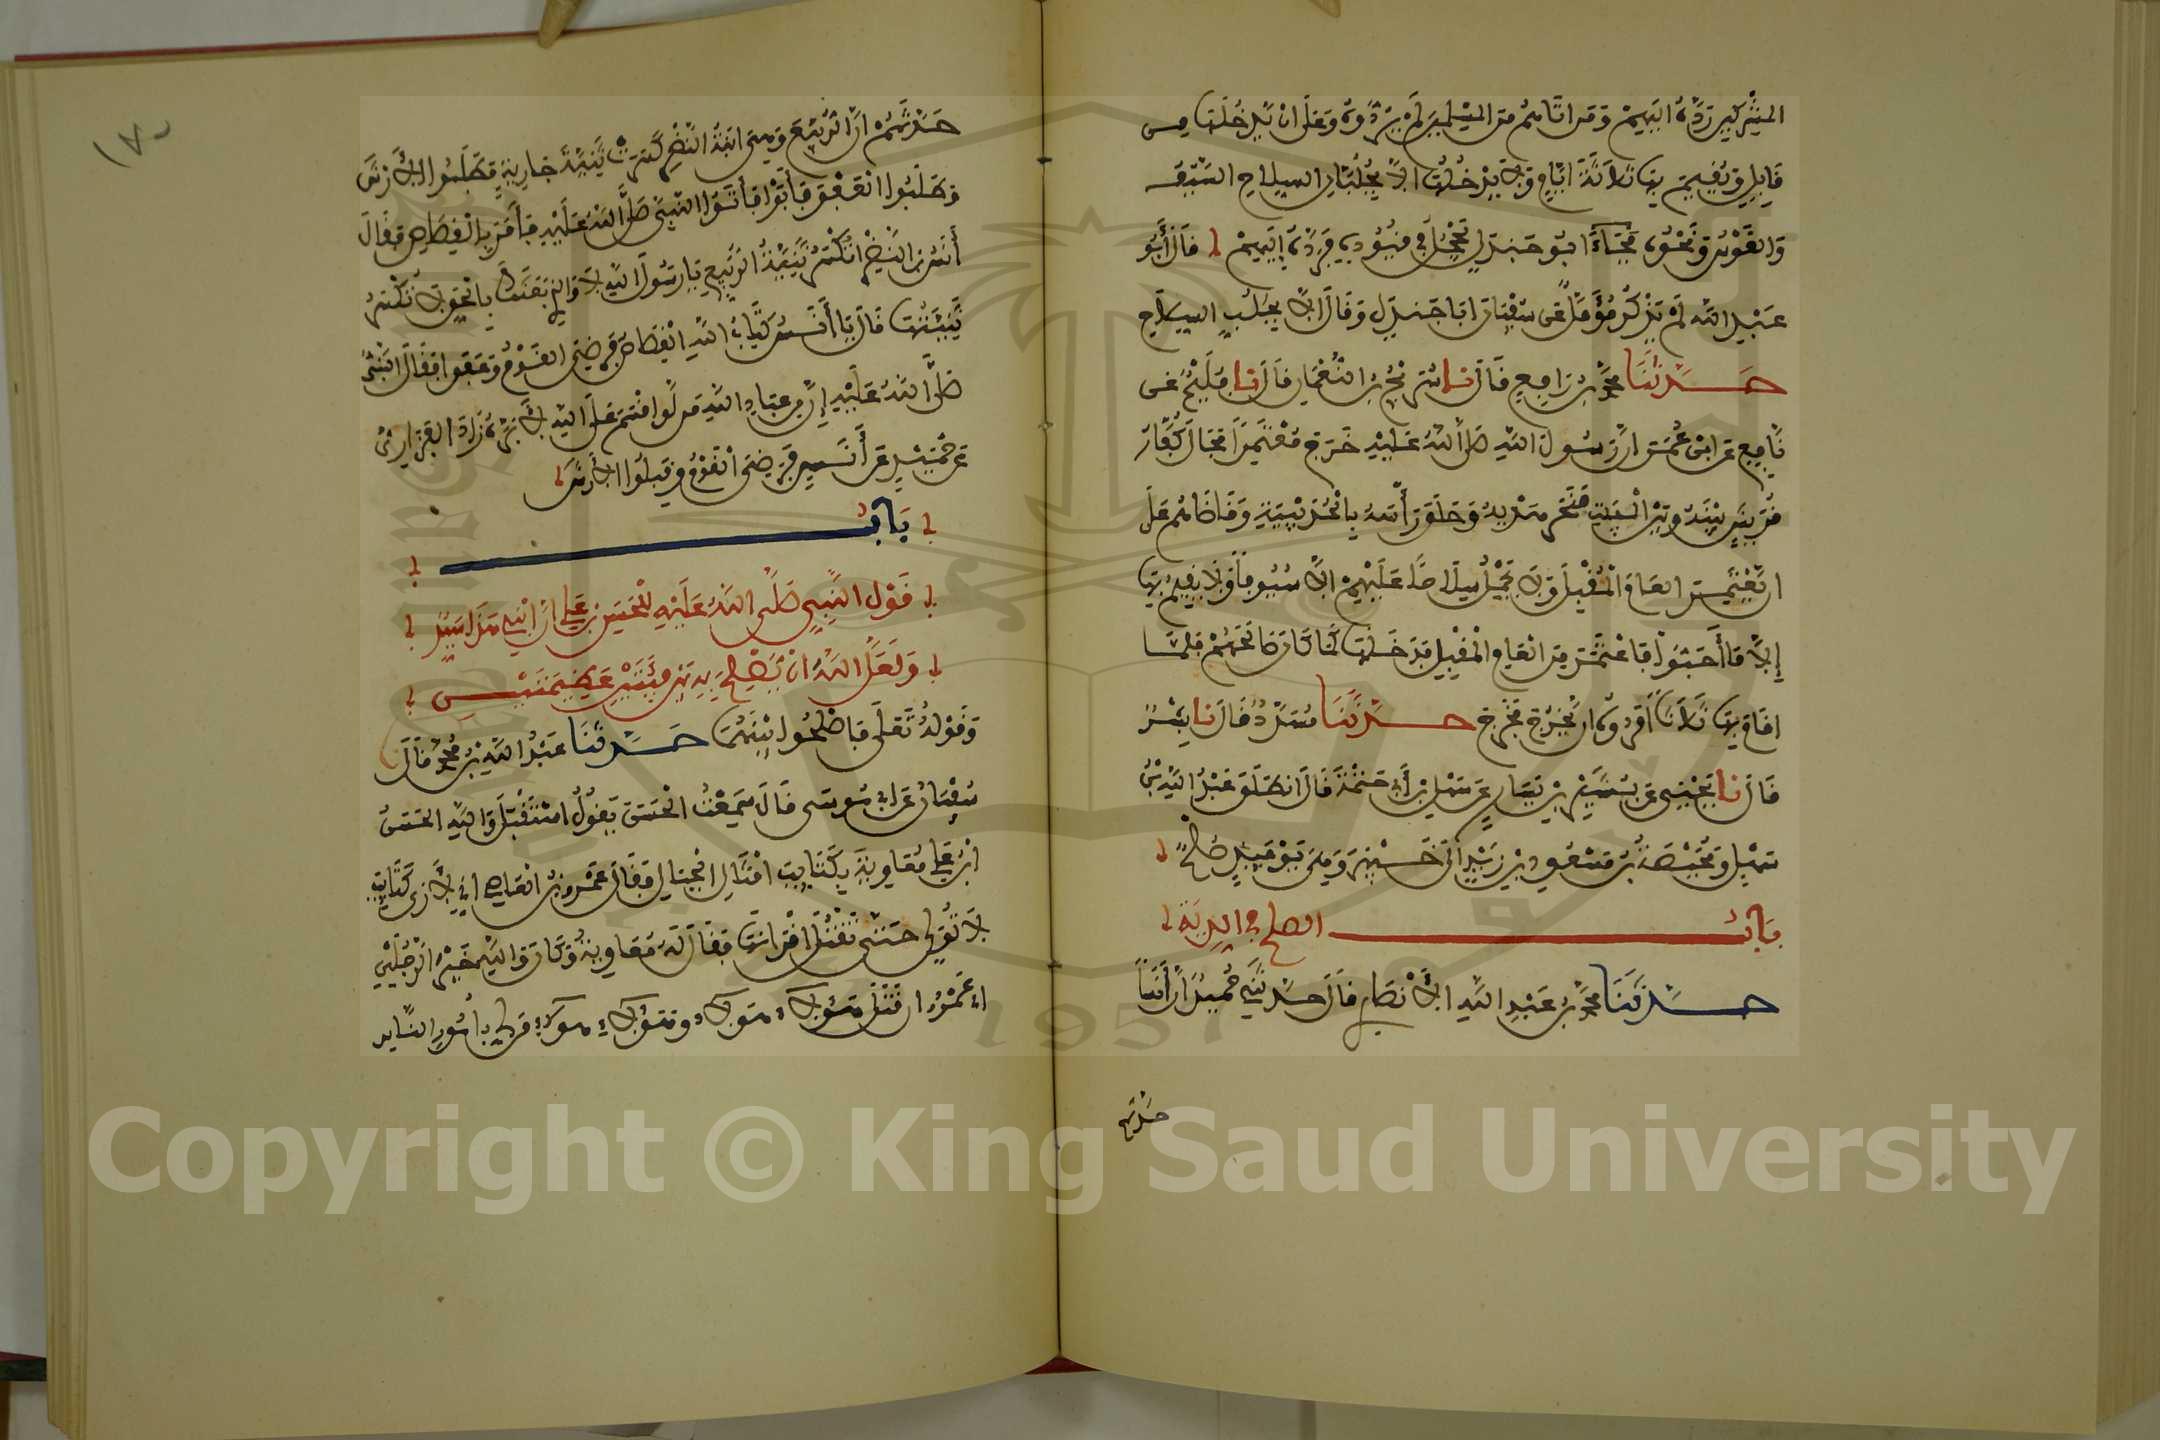 المشركين رده اليهم ومن اتاهم من المسلمين لم يردوه وعلى ان يدخلها من
قابل ويقيم بها ثلاثة ايام ولا يدخلها الا بجلبان السلاح السيف
والقوس ونحوه فجاء ابو جندل يحجل في قيوده فرده إليهم قال أبو
عبد الله لم يذكر مؤمل عن سفيان ابا جندل وقال الا بجلب السلاح
حدثنا محمد بن رافع قال نا سريج بن النعمان قال نا فليح عن
نافع عن ابن عمر ان رسول الله صلى الله عليه خرج معتمرا فحال كفار
قريش بينه وبين البيت فنحر هديه وحلق رأسه بالحديبية وقاضاهم على
ان يعتمر العام المقبل ولا يحمل سلاحا عليهم الا سيوفا ولا يقيم بها
إلا ما أحبوا فاعتمر من العام المقبل فدخلها كما كان صالحهم فلما
اقام بها ثلاثا أمروه ان يخرج فخرج حدثنا مسدد قال نا بشر
قال نا يحيى عن بشير بن يسار عن سهل بن أبي حثمة قال انطلق عبد الله بن
سهل ومحيصة بن مسعود بن زيد الى خيبر وهي يومئذ صلح
باب الصلح في الدية
حدثنا محمد بن عبد الله الانصاري قال حدثني حميد أن أنسا
حدثهم
١٧٠
حدثهم ان الربيع وهي ابنة النضر كسرت ثنية جارية فطلبوا الارش
وطلبوا العفو فأبوا فأتوا النبي صلى الله عليه فأمر بالقصاص فقال
أنس بن النضر اتكسر ثنية الربيع يا رسول الله لا والذي بعثك بالحق لا تكسر
ثنيتها قال يا أنس كتاب الله القصاص فرضي القوم وعفوا فقال النبي
صلى الله عليه إن من عباد الله من لو اقسم على الله لأبره زاد الفزاري
عن حميد عن أنس فرضي القوم وقبلوا الارش
باب
قول النبي صلى الله عليه للحسن بن علي ان ابني هذا سيد
ولعل الله ان يصلح به بين فئتين عظيمتين
وقوله تعلى فاصلحوا بينهما حدثنا عبد الله بن محمد قال
سفيان عن ابي موسى قال سمعت الحسن يقول استقبل والله الحسن
ابن علي معاوية بكتايب امثال الجبال فقال عمرو بن العاص اني لارى كتايب
لا تولي حتى تقتل اقرانها فقال له معاوية وكان والله خير الرجلين
اي عمرو ان قتل هؤلاء هؤلاء وهؤلاء هؤلاء من لي بأمور الناس